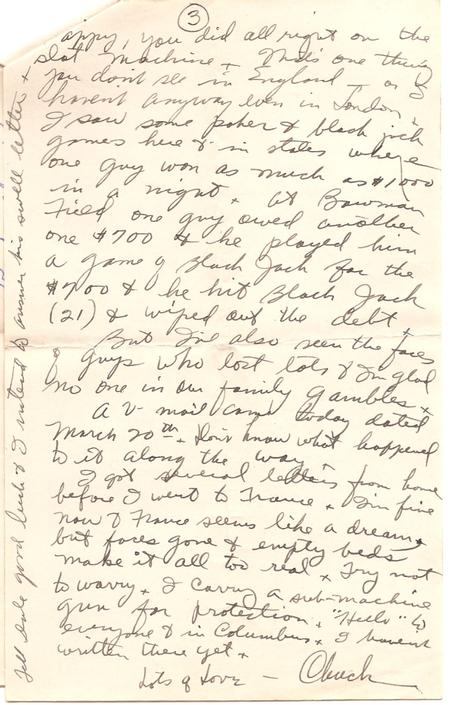 3
appy, you did all right on the
slot machine. That's one thing
you don't see in England - or I
haven't anyway even in London.
I saw some poker & black jack
games here & in states where
one guy won as much as $1000
in a night. At Bowman
Field one guy owed another
one $700 & he played him
a game of Black Jack for the
$700 & he hit Black Jack
(21) & wiped out the debt.
But I've also seen the faces
of guys who lost lots & I'm glad
no one in our family gambles.
A V-mail came today dated
March 20th. Don't know what happened
to it along the way.
I got several letters from home
before I went to France. I'm fine
now & France seems like a dream,
but faces gone & empty beds
make it all too real. Try not
to worry. I carry a sub-machine
gun for protection. "Hello" to
everyone & in Columbus. I haven't
written there yet.
Lots of Love - Chuck
Tell Dale good luck & I intend to answer his swell letter.